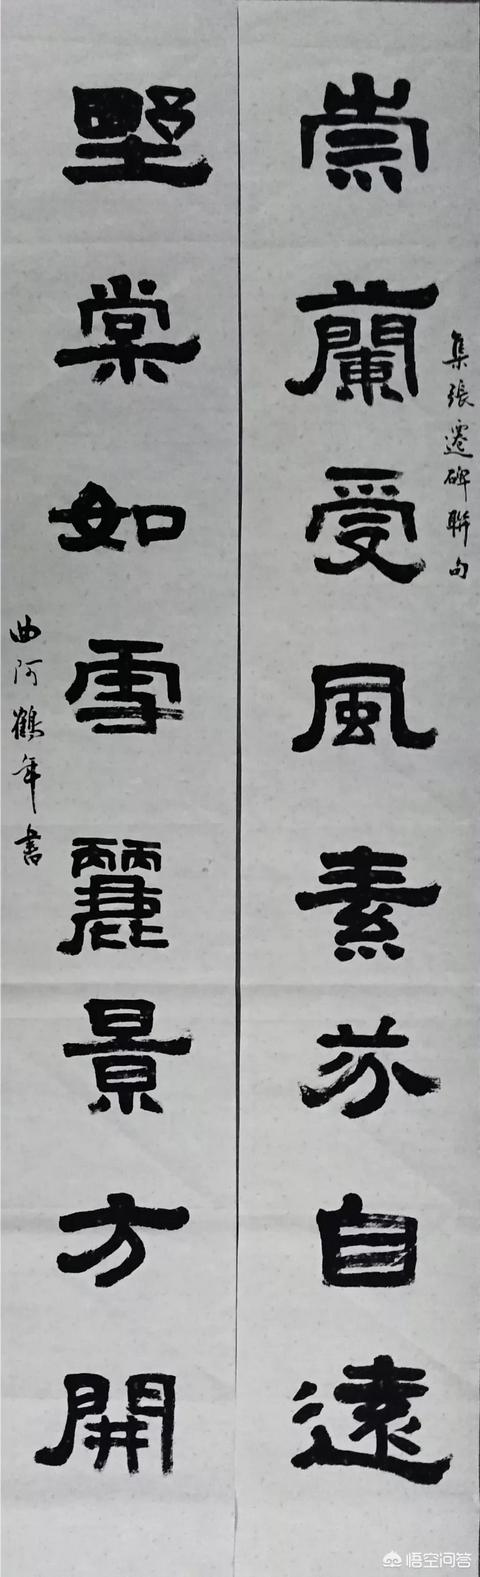 崇蘭受風素芬自遠
集張遷碑聯句
野棠如雪麗景方開
曲阿鶴年書
悟空问答